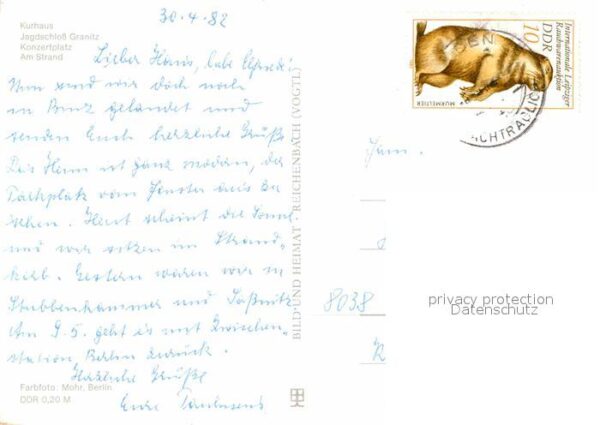 30.4.82
Kurhaus
Jagdschloß Granitz
Konzertplatz
Am Strand
Lieber Hans, liebe
Nun sind wir doch noch
in Binz gelandet und
senden Euch herzliche Grüße
Das Haus ist ganz modern, der
Parkplatz vom Fenster aus zu
sehen. Heut scheint die Sonne
und wir sitzen im Strand-
korb. Gestern waren wir in
Stubbenkammer und Saßnitz
Am 9.5. geht es mit Zwischen-
station Berlin zurück.
Herzliche Grüße
Eure
Farbfoto: Mohr, Berlin
DDR 0,20 M
BILD UND HEIMAT · REICHENBACH (VOGTL)
Internationale Leipziger
Rauchwarenauktion
DDR
10
MURMELTIER
NACHTRÄGLICH
Fam.
8038
privacy protection
Datenschutz